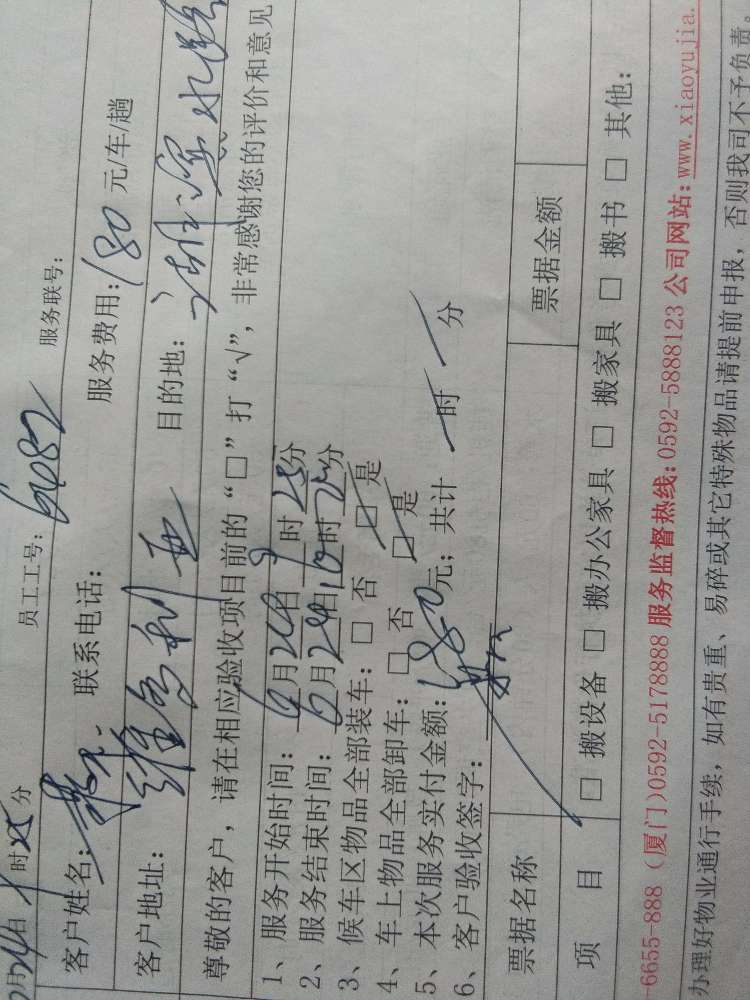 时25分 员工工号：6082 服务联号：
客户姓名： 联系电话： 服务费用：180元/车/趟
客户地址：维多利亚 目的地：
尊敬的客户，请在相应验收项目前的“□”打“√”，非常感谢您的评价和意见
1、服务开始时间：6月24日 时25分
2、服务结束时间：6月24日 时 分
3、候车区物品全部装车：□ 否 □ 是
4、车上物品全部卸车：□ 否 □ 是
5、本次服务实付金额： 元；共计 时 分
6、客户验收签字：
票据名称 票据金额
项 目 □ 搬设备 □ 搬办公家具 □ 搬家具 □ 搬书 □ 其他：
6655-888（厦门）0592-5178888 服务监督热线：0592-5888123 公司网站：www.xiaoyujia.
办理好物业通行手续，如有贵重、易碎或其它特殊物品请提前申报，否则我司不予负责。